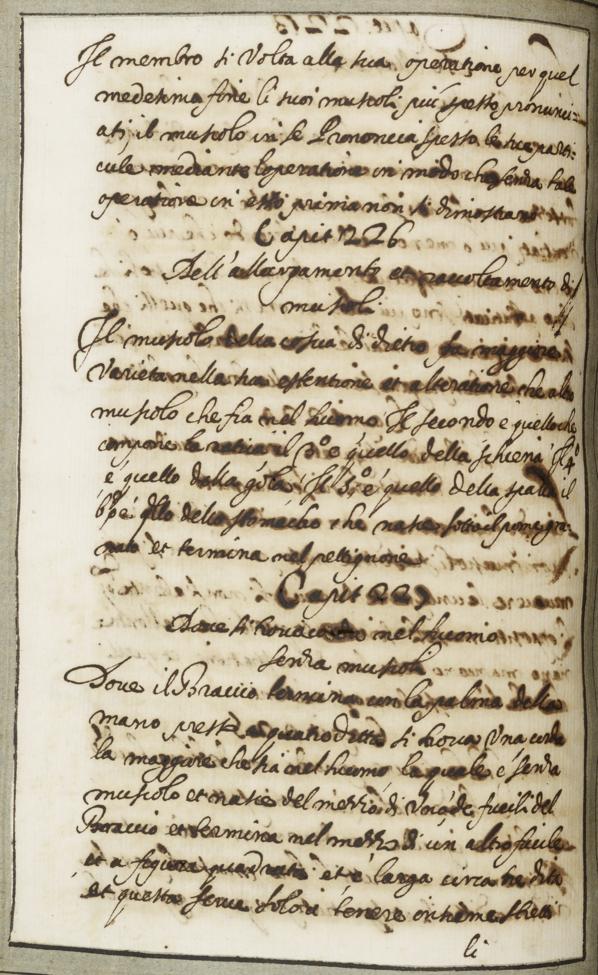 Il membro si Volta alla sua operatione per quel
medesimo fine li suoi muscoli più spesso pronunci=
ati, il muscolo in se Prononcia spesso le sue parti=
cule mediante l'operatione in modo che senza tale
operatione in esso prima non si dimostrano
Capit 226
Dell'allargamento et raccoltamento di
muscoli
Il muscolo della coscia di dietro fa maggiore
Varietà nella sua estentione et alteratione che altro
muscolo che sia nel huomo Il secondo e quello che
compone la natica il 3º e quello della schiena Il 4º
è quello della gola Il 5º e quello della spalla il
6º è qllo dello stomacho che nasce sotto il pomo gra=
nato et termina nel pettignone
Capit 227
Dove si trova corda nel huomo
senza muscoli
Dove il Braccio termina con la palma della
mano presso a quatro dita si trova Una corda
la maggiore che sia nel huomo la quale è senza
muscolo et nasce del mezzo di Uno de fucili del
Braccio et termina nel mezzo di un altro fucile
et a figura quadrata et è larga circa tre dita
et questa serve solo a tenere insieme
li